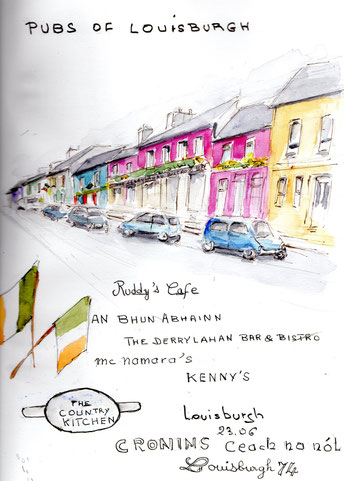 PUBS OF LOUISBURGH
Ruddy's Cafe
AN BHUN ABHAINN
THE DERRYLAHAN BAR & BISTRO
mc namara's
KENNY'S
THE
COUNTRY
KITCHEN
Louisburgh
23.06
CRONINS Ceach na nól
Louisburgh 74